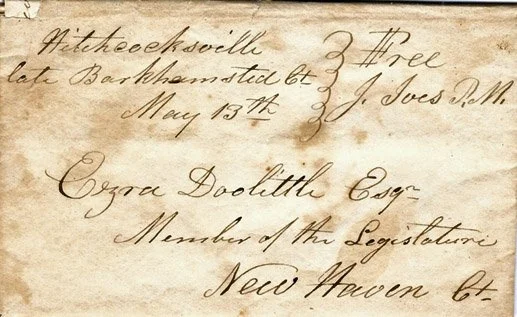 Hitchcocksville
late Barkhemsted Ct
May 13th
Free
J. Ives P.M.
Ezra Doolittle Esqr
Member of the Legislature
New Haven Ct.